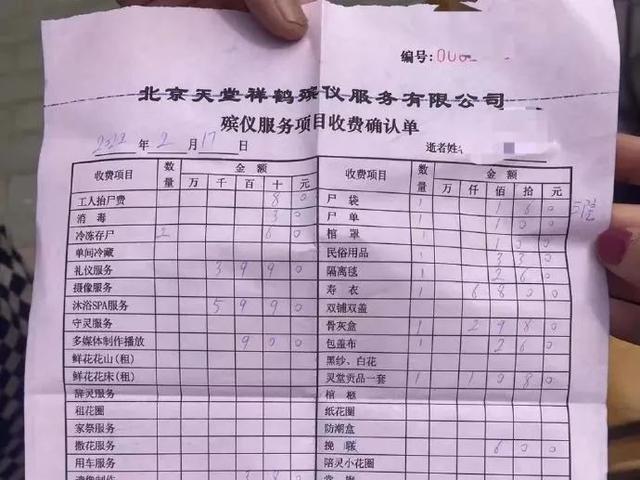 编号: 000
北京天堂祥鹤殡仪服务有限公司
殡仪服务项目收费确认单
2022 年 2 月 17 日 逝者姓名
收费项目 数量 金额 万 千 百 十 元 收费项目 数量 金额 万 仟 佰 拾 元
工人抬尸费 8 0 尸 袋 1 1 6 0
消 毒 3 0 尸 单 1 1 0 0
冷冻存尸 2 6 0 棺 罩 1 1 0
单间冷藏 民俗用品 3 3 0
礼仪服务 3 9 9 0 隔离毯 1 2 6 0
摄像服务 寿 衣 1 6 8 0 0
沐浴SPA服务 5 9 9 0 双铺双盖
守灵服务 骨灰盒 1 2 9 8 0
多媒体制作播放 9 0 0 包盖布 1 2 6 0
鲜花花山(租) 黑纱、白花
鲜花花床(租) 灵堂贡品一套 1 1 0 8 0
辞灵服务 棺 柩
租花圈 纸花圈
家祭服务 防潮盒
撒花服务 挽 联 6 0 0
用车服务 陪灵小花圈